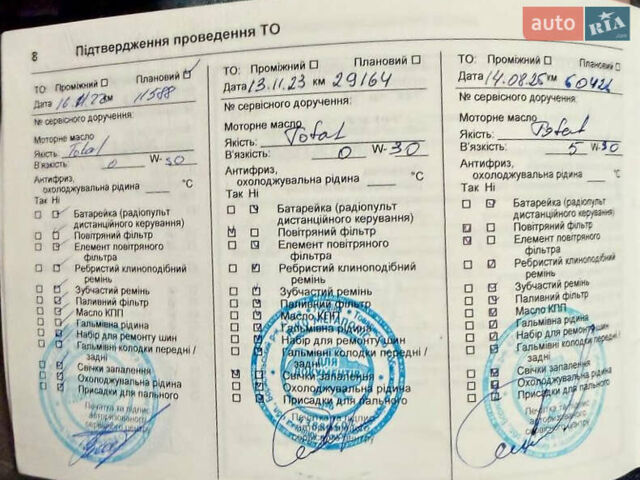 auto RIA
.com
8 Підтвердження проведення ТО
ТО: Проміжний Плановий
Дата 11588
№ сервісного доручення:
Моторне масло
Якість: Total
В'язкість: 0 W-30
Антифриз,
охолоджувальна рідина °C
Так Ні
Батарейка (радіопульт
дистанційного керування)
Повітряний фільтр
Елемент повітряного
фільтра
Ребристий клиноподібний
ремінь
Зубчастий ремінь
Паливний фільтр
Масло КПП
Гальмівна рідина
Набір для ремонту шин
Гальмівні колодки передні /
задні
Свічки запалення
Охолоджувальна рідина
Присадки для пального
Печатка та підпис
авторизованого
сервісного центру
ТО: Проміжний Плановий
Дата 13.11.23 км 29164
№ сервісного доручення:
Моторне масло
Якість: Total
В'язкість: 0 W-30
Антифриз,
охолоджувальна рідина °C
Так Ні
Батарейка (радіопульт
дистанційного керування)
Повітряний фільтр
Елемент повітряного
фільтра
Ребристий клиноподібний
ремінь
Зубчастий ремінь
Паливний фільтр
Масло КПП
Гальмівна рідина
Набір для ремонту шин
Гальмівні колодки передні /
задні
Свічки запалення
Охолоджувальна рідина
Присадки для пального
Печатка та підпис
сервісного центру
ТО: Проміжний Плановий
Дата 14.08.25 км
№ сервісного доручення:
Моторне масло
Якість: Total
В'язкість: 5 W-30
Антифриз,
охолоджувальна рідина °C
Так Ні
Батарейка (радіопульт
дистанційного керування)
Повітряний фільтр
Елемент повітряного
фільтра
Ребристий клиноподібний
ремінь
Зубчастий ремінь
Паливний фільтр
Масло КПП
Гальмівна рідина
Набір для ремонту шин
Гальмівні колодки передні /
задні
Свічки запалення
Охолоджувальна рідина
Присадки для пального
Печатка та підпис
авторизованого
сервісного центру